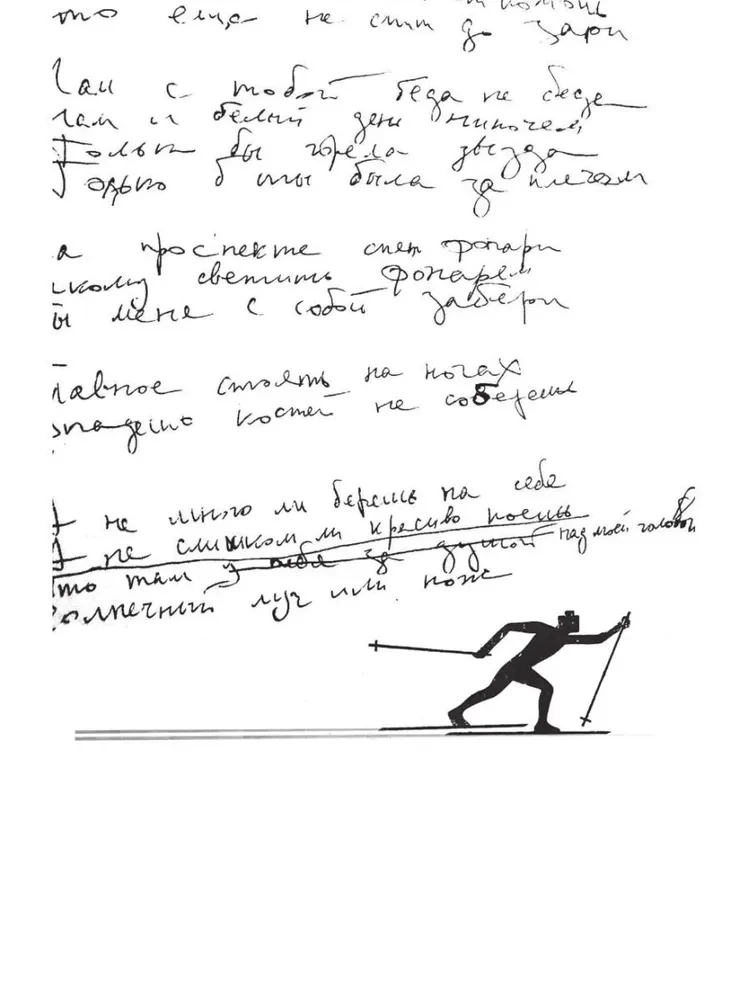 то еще не спит до зари
Нам с тобой беда не беда
Нам и белый день нипочем
Только бы горела звезда
Только б ты была за плечом
а проспекте снег фонари
светить фонарем
ы меня с собой забери
лавное стоять на ногах
костей не соберешь
А не много ли берешь на себя
А не слишком ли красиво поешь
то там у тебя за душой над моей головой
солнечный луч или нож